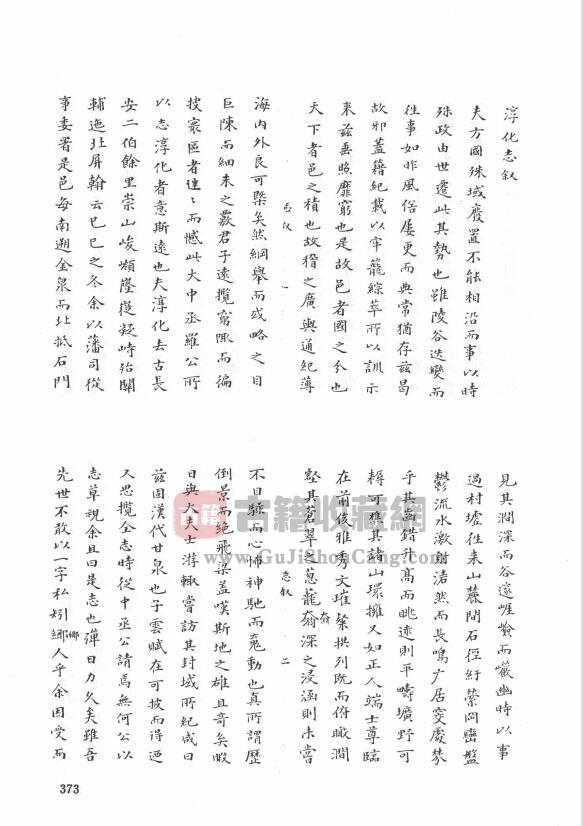 淳化志叙
夫方國殊域廢置不能相沿而事以時
殊政由世遷此其勢也雖陵谷迭變而
往事如昨風俗屢更而典常猶存茲曷
故邪蓋籍紀載以牢籠綜萃所以訓示
來茲垂照靡窮也是故邑者國之分也
天下者邑之積也故稽之廣輿通紀薄
志叙 一
海内外良可槩矣然綱舉而或略之目
巨陳而細未之覈君子遠攬窮陬而徧
披寰區者往往而憾此大中丞羅公所
以志淳化者意斯遠也夫淳化去古長
安二伯餘里崇山峻嶺隆嵸凝峙殆關
輔迤北屏翰云己巳之冬余以藩司從
事委署是邑每南遡金泉而北抵石門
見其澗深而谷邃崕嶮而巘幽時以事
過村墟往来山麓間石徑紆縈岡巒盤
鬱流水激射潝然而長鳴广居窔處棼
乎其西錯升高而眺遠則平疇壙野可
耕可樵其諸山環擁又如正人端士尊臨
在前俊雅秀文璀粲拱列既而俯瞰澗
壑其蒼翠之蔥蘢窈深之浸涵則未嘗
志叙 二
不目駴而心怖神馳而魂動也真所謂歷
倒景而絶飛梁蓋嘆斯地之雄且奇矣暇
日與大夫士游輙嘗訪其封域所紀咸曰
茲固漢代甘泉也子雲賦在可披而得迺
又思攬全志時從中丞公請焉無何公以
志草視余且曰是志也殫日力久矣雖吾
先世不敢以一字私矧鄉人乎余因受而
373
古籍收藏網
www.GuJiShouCang.com